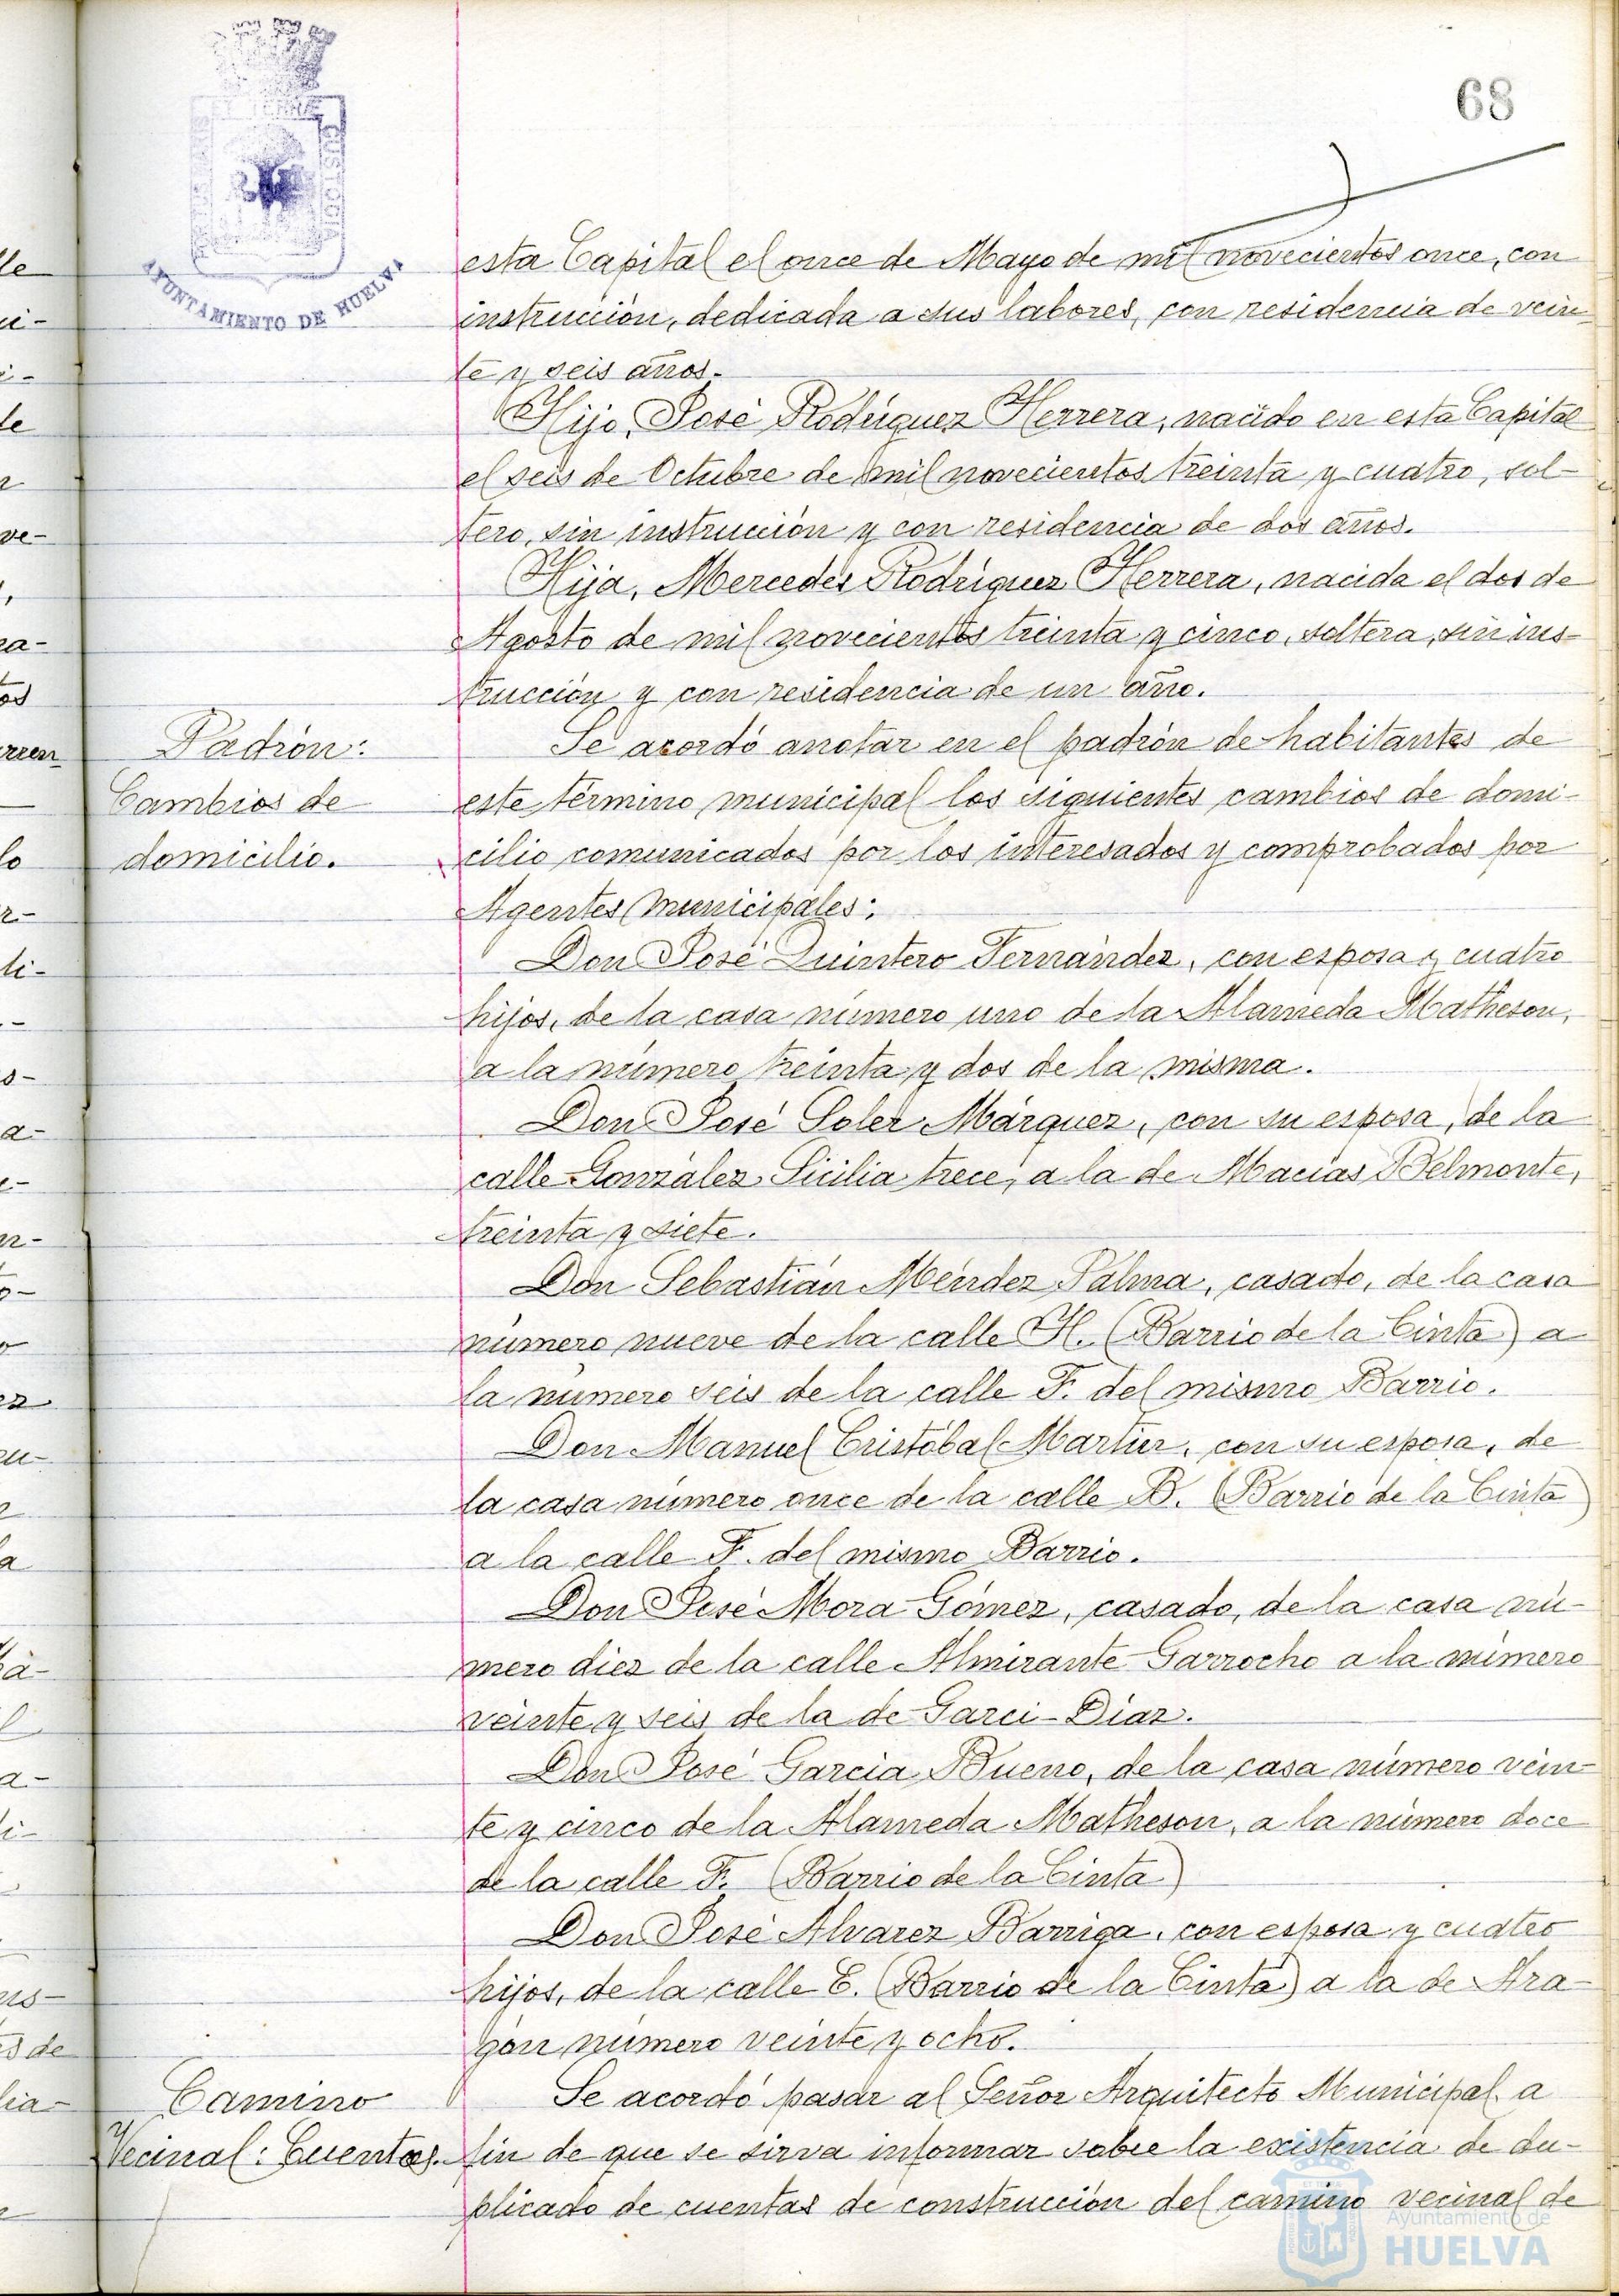 68
AYUNTAMIENTO DE HUELVA
esta Capital el once de Mayo de mil novecientos once, con
instrucción, dedicada a sus labores, con residencia de vein-
te y seis años.
Hijo, José Rodríguez Herrera, nacido en esta Capital
el seis de Octubre de mil novecientos treinta y cuatro, sol-
tero, sin instrucción y con residencia de dos años.
Hija, Mercedes Rodríguez Herrera, nacida el dos de
Agosto de mil novecientos treinta y cinco, soltera, sin ins-
trucción y con residencia de un año.
Padrón:
Cambios de
domicilio.
Se acordó anotar en el padrón de habitantes de
este término municipal los siguientes cambios de domi-
cilio comunicados por los interesados y comprobados por
Agentes municipales:
Don José Quintero Fernández, con esposa y cuatro
hijos, de la casa número uno de la Alameda Matheson,
a la número treinta y dos de la misma.
Don José Soler Márquez, con su esposa, de la
calle González Sicilia trece, a la de Macías Belmonte,
treinta y siete.
Don Sebastián Méndez Palma, casado, de la casa
número nueve de la calle H. (Barrio de la Cinta) a
la número seis de la calle F. del mismo Barrio.
Don Manuel Cristóbal Martín, con su esposa, de
la casa número once de la calle B. (Barrio de la Cinta)
a la calle F. del mismo Barrio.
Don José Mora Gómez, casado, de la casa nú-
mero diez de la calle Almirante Garrocho a la número
veinte y seis de la de Garci-Díaz.
Don José García Bueno, de la casa número vein-
te y cinco de la Alameda Matheson, a la número doce
de la calle F. (Barrio de la Cinta)
Don José Alvarez Barriga, con esposa y cuatro
hijos, de la calle E. (Barrio de la Cinta) a la de Ara-
gón número veinte y ocho.
Camino
Vecinal: Cuentas.
Se acordó pasar al Señor Arquitecto Municipal a
fin de que se sirva informar sobre la existencia de du-
plicado de cuentas de construcción del camino vecinal de
Ayuntamiento de
HUELVA